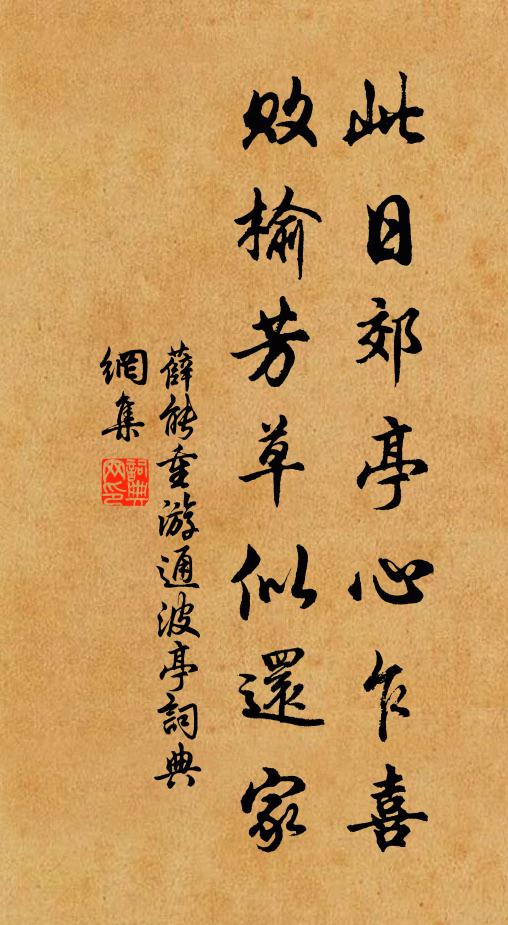 此日郊亭心乍喜
敗榆芳草似還家
薛能重游通波亭詞典
網集
詞典
网印